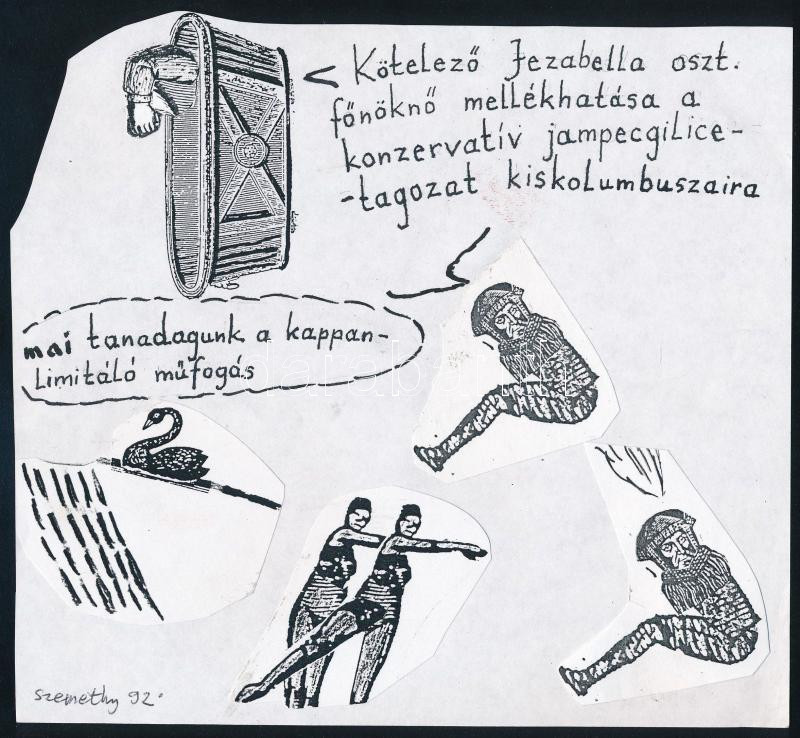 < Kötelező Jezabella oszt.
főnöknő mellékhatása a
konzervatív jampecgilice-
-tagozat kiskolumbuszaira
mai tanadagunk a kappan-
Limitáló műfogás
szemethy 92.